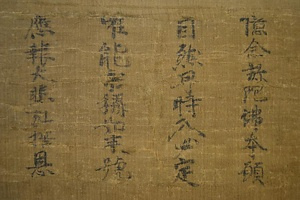 憶念弥陀佛本願
自然即時入必定
唯能常稱如来號
應報大悲弘誓恩